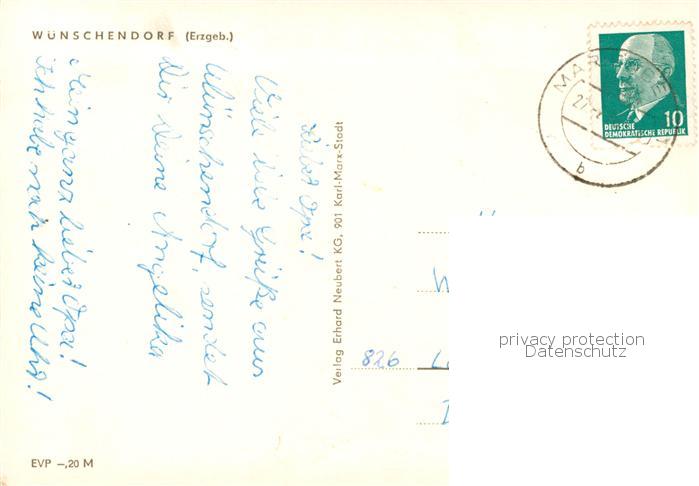 WÜNSCHENDORF (Erzgeb.)
Lieber Opa!
Viele liebe Grüße aus
Wünschendorf, sendet
Dir Deine Angelika
Mein ganz lieber Opa!
Ich habe noch keine Uhr!
Verlag Erhard Neubert KG, 901 Karl-Marx-Stadt
10
DEUTSCHE
DEMOKRATISCHE REPUBLIK
b
826
privacy protection
Datenschutz
EVP –,20 M